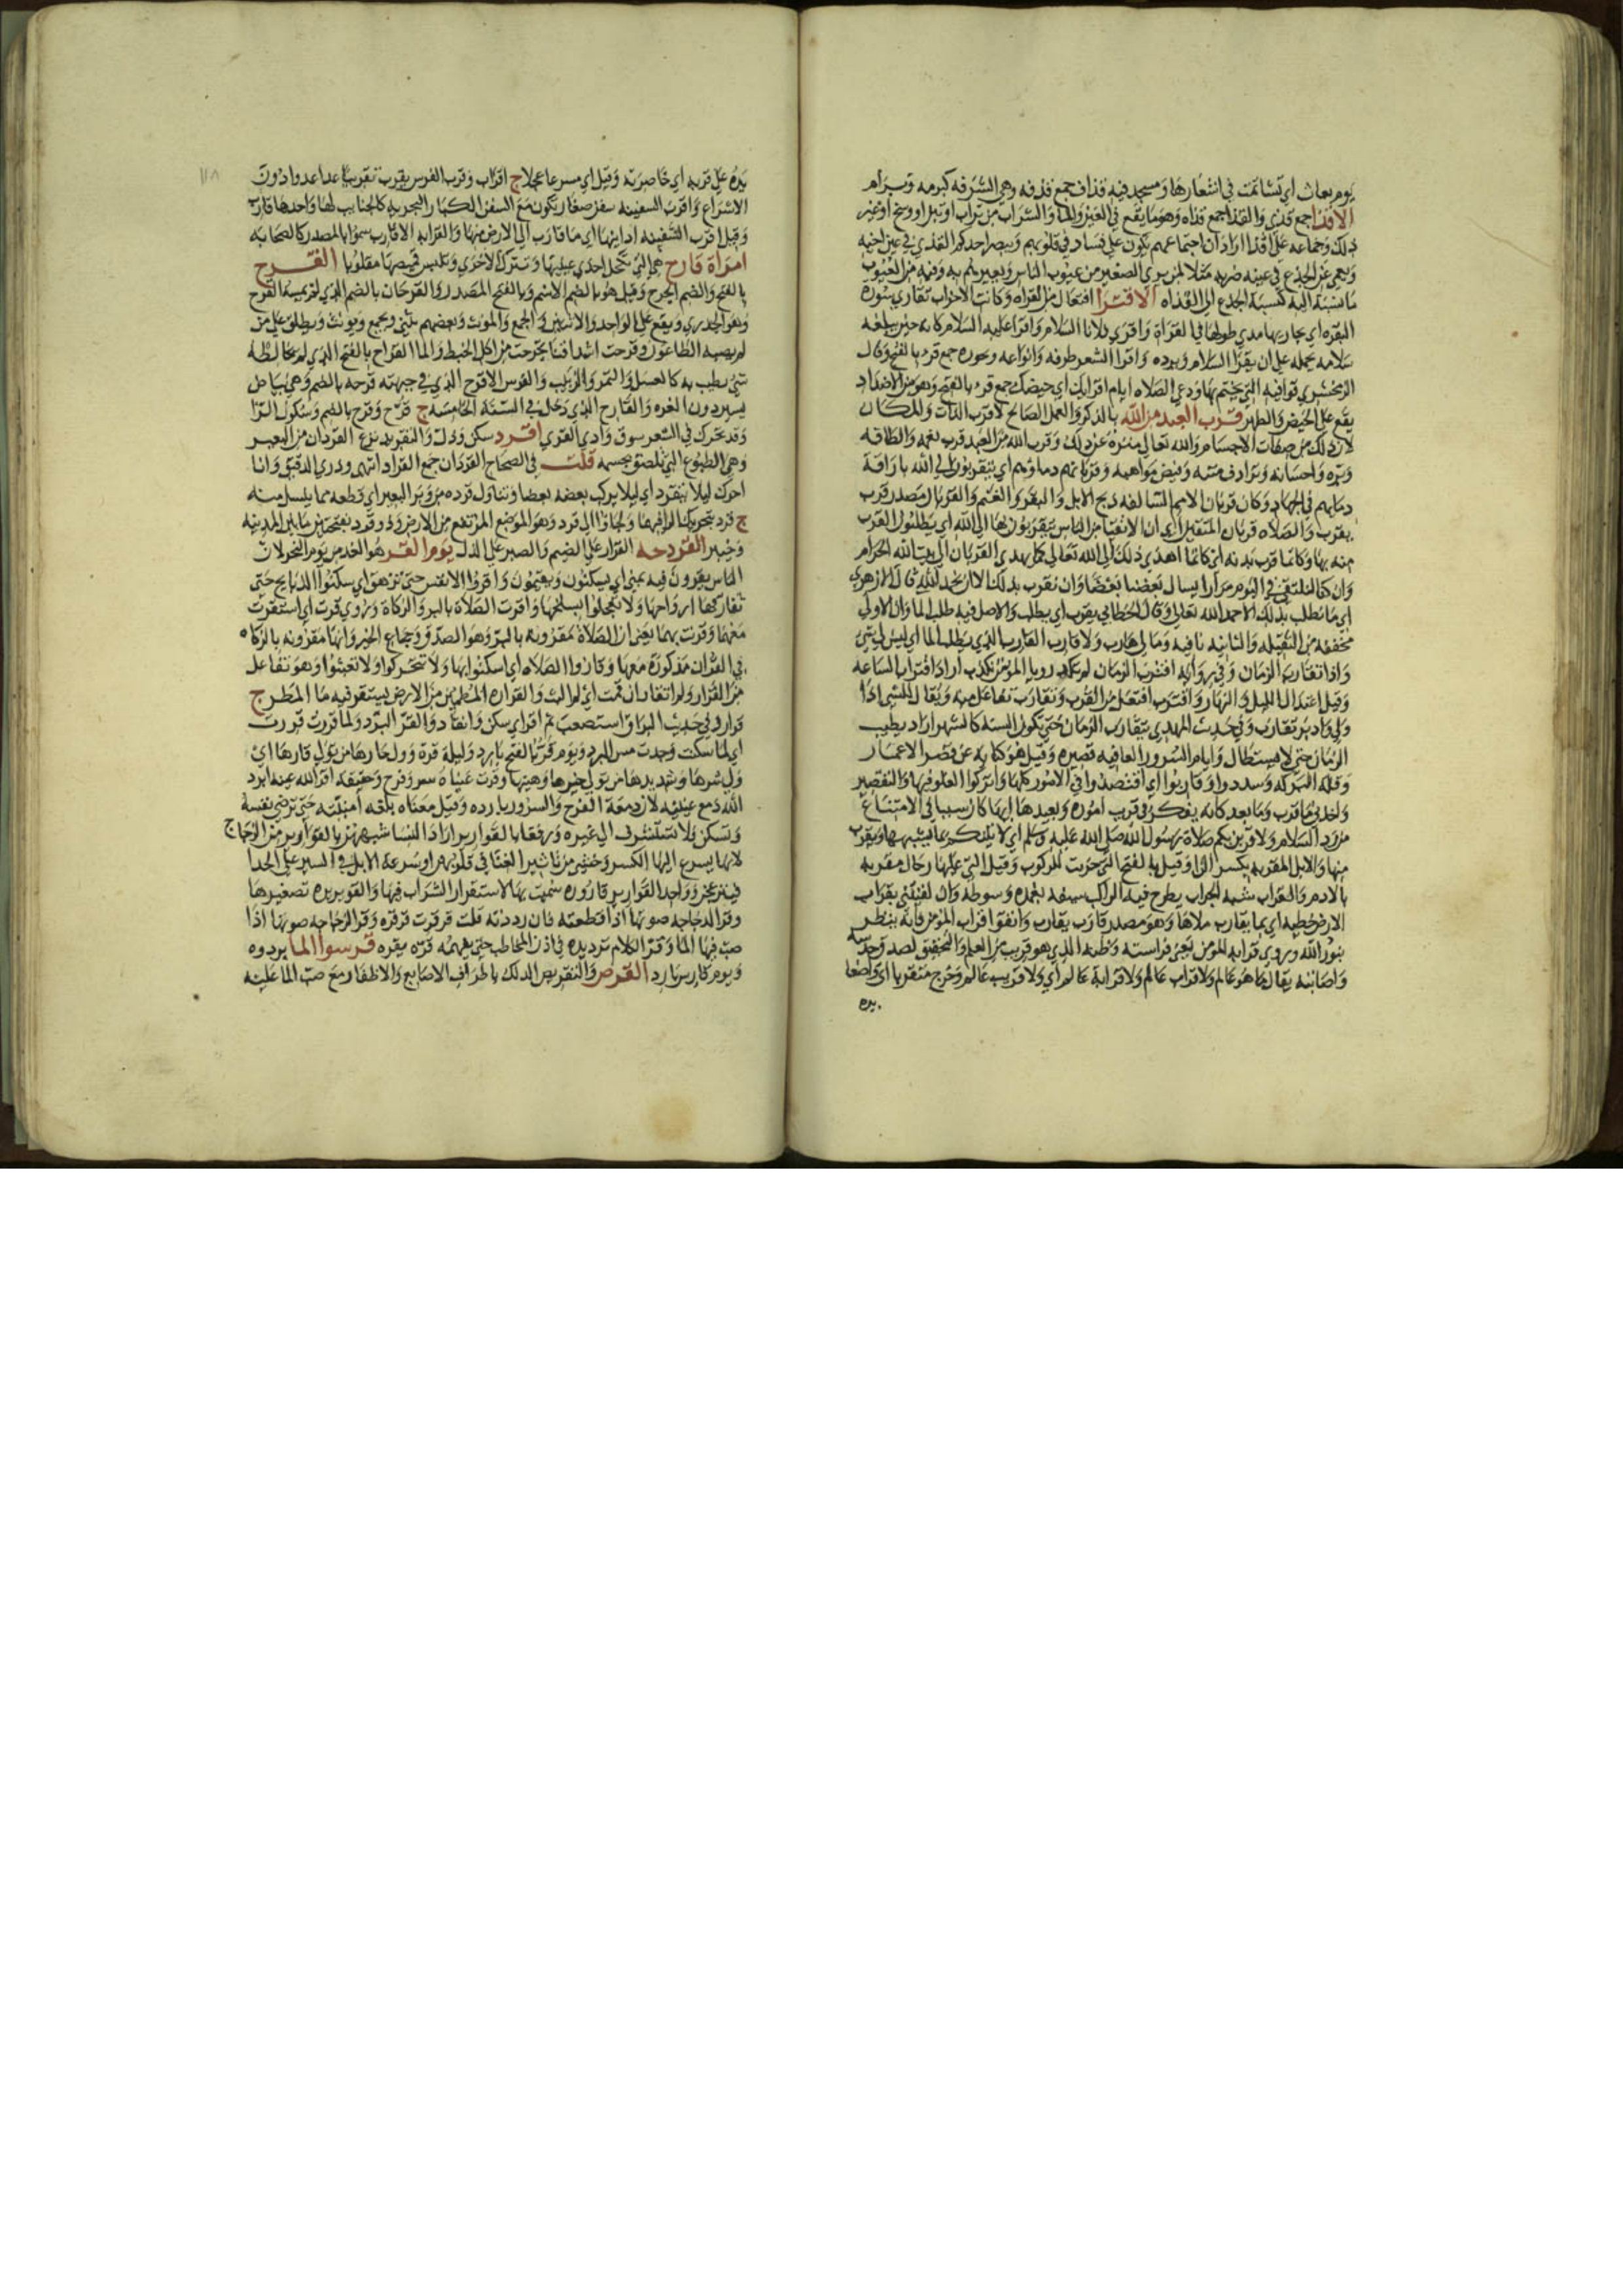 يوم بعاث اي تشاتمت في اشعارها ومسجد فيه قذاف جمع قذفه وهي الشرفه كبرمه وبرام
الاقذا جمع قذي والقذا جمع قذاه وهو ما يقع في العين والما والشراب من تراب او تبن او وسخ او غير
ذلك وجماعه علي اقذا اراد ان اجتماعهم يكون علي فساد في قلوبهم ويبصر احدكم القذي في عين اخيه
ويعمي عن الجذع في عينه ضربه مثلا لمن يري الصغير من عيوب الناس ويعيرهم به وفيه من العيوب
ما نسبته اليه كنسبة الجذع الي القذاه الاقترا افتعال من القراه وكانت الاحزاب تقاري سورة
البقره اي تجاريها مدي طولها في القراة واقري فلانا السلام واقرا عليه السلام كانه حين يبلغه
سلامه يحمله علي ان يقرا السلام ويرده واقرا الشعر طرقه وانواعه وبحوره جمع قرء بالفتح وقال
الزمخشري قوافيه التي يختم بها ودعي الصلاه ايام اقرايك اي حيضك جمع قرء بالفتح وهو من الاضداد
يقع علي الحيض والطهر قرب العبد من الله بالذكر والعمل الصالح لا قرب الذات والمكان
لان ذلك من صفات الاجسام والله تعالي منزه عن ذلك وقرب الله من العبد قرب نعمه والطافه
وبره واحسانه وترادف مننه وفيض مواهبه وقربانهم دماوهم اي يتقربون الي الله باراقة
دمايهم في الجهاد وكان قربان الامم السالفه ذبح الابل والبقر والغنم والقربان مصدر قرب
يقرب والصلاه قربان المتقين اي ان الاتقيا من الناس يتقربون بها الي الله اي يطلبون القرب
منه بها وكانما قرب بدنه اي كانما اهدي ذلك الي الله تعالي كما يهدي القربان الي بيت الله الحرام
وان كنا لنلتقي في اليوم مرارا يسال بعضنا بعضا وان نقرب بذلك الا ان نحمد الله قال الازهري
اي ما نطلب بذلك الا حمد الله تعالي وقال الخطابي نقرب اي نطلب والاصل فيه طلب الما وان الاولي
مخففه من الثقيله والثانيه نافيه وما لي هارب ولا قارب القارب الذي يطلب الما اي ليس لي شي
واذا تقارب الزمان وفي روايه اقترب الزمان لم تكد رويا المومن تكذب اراد اقتراب الساعه
وقيل اعتدال الليل والنهار واقترب افتعل من القرب وتقارب تفاعل منه ويقال للشي اذا
ولي وادبر تقارب وفي حديث المهدي يتقارب الزمان حتي تكون السنة كالشهر اراد يطيب
الزمان حتي لا يستطال وايام السرور والعافيه قصيره وقيل هو كنايه عن قصر الاعمار
وقلة البركه وسددوا وقاربوا اي اقتصدوا في الامور كلها واتركوا الغلو فيها والتقصير
واخذني ما قرب وما بعد كانه يفكر في قريب اموره وبعيدها ايها كان سببا في الامتناع
من رد السلام ولاقربن بكم صلاة رسول الله صلي الله عليه وسلم اي لاتينكم بما يشبهها ويقرب
منها والابل المقربه بكسر الرا وقيل بالفتح التي حزمت للركوب وقيل التي عليها رحال مقربه
بالادم والقراب شبه الجراب يطرح فيه الراكب سيفه بغمده وسوطه وان لقيتني بقراب
الارض خطيه اي بما يقارب ملاها وهو مصدر قارب يقارب واتقوا قراب المومن فانه ينظر
بنور الله وروي قرابه المومن يعني فراسته وظنه الذي هو قريب من العلم والتحقيق لصدق حدسه
واصابته يقال ما هو عالم ولا قراب عالم ولا قرابة عالم اي ولا قريب عالم وخرج متقربا اي واضعا
يده
يده علي قربه اي خاصرته وقيل اي مسرعا عجلا ج اقراب وقرب الفرس يقرب تقريبا عدا عدوا دون
الاسراع واقرب السفينه سفن صغار تكون مع السفن الكبار البحريه كالجنايب لها واحدها قارب
وقيل اقرب السفينه ادانيها اي ما قارب الي الارض منها والقرابه الاقارب سموا بالمصدر كالصحابه
امراة قارح هي التي تكحل احدي عينيها وتترك الاخري وتلبس قميصها مقلوبا القرح
بالفتح والضم الجرح وقيل هو بالضم الاسم وبالفتح المصدر والقرحان بالضم الذي لم يمسه القرح
وهو الجدري ويقع علي الواحد والاثنين والجمع والمونث وبعضهم يثني ويجمع ويونث ويطلق علي من
لم يصبه الطاعون وقرحت اشداقنا تجرحت من اكل الخبط والما القراح بالفتح الذي لم يخالطه
شي يطيب به كالعسل والتمر والزبيب والفرس الاقرح الذي في جبهته قرحه بالضم وهي بياض
يسير دون الغره والقارح الذي دخل في السنة الخامسه ج قرح وقرح بالضم وسكون الرا
وقد تحرك في الشعر سوق وادي القري اقرد سكن وذل والتقريد نزع القردان من البعير
وهي الطبوع التي تلصق بجسمه قلت في الصحاح القردان جمع القراد انتهي وذري الدقيق وانا
احرك ليلا يتقرد اي ليلا يركب بعضه بعضا وتناول قرده من وبر البعير اي قطعه مما ينسل منه
ج قرد بتحريك الرا فيهما ولجاوا الي قردد وهو الموضع المرتفع من الارض وذو قرد بفتحتين ما بين المدينه
وخيبر القردحه القرار علي الضيم والصبر علي الذل يوم القر هو الغد من يوم النحر لان
الناس يقرون فيه بمني اي يسكنون ويقيمون واقروا الانفس حتي تزهق اي سكنوا الذبايح حتي
تفارقها ارواحها ولا تعجلوا بسلخها واقرت الصلاة بالبر والزكاة وروي قرت اي استقرت
معهما وقرنت بهما يعني ان الصلاة مقرونه بالبر وهو الصدق وجماع الخير وانها مقرونه بالزكاه
في القران مذكورة معها وقاروا الصلاه اي اسكنوا بها ولا تتحركوا ولا تعبثوا وهو تفاعل
من القرار ولم اتقار ان قمت اي لم البث والقراره المطمين من الارض يستقر فيه ما المطر ج
قرار وفي حديث البراق استصعب ثم اقر اي سكن وانقاد والقر البرد ولما قررت قررت
اي لما سكنت وجدت مس البرد ويوم قر بالفتح بارد وليلة قرة وول حارها من تولي قارها اي
ول شرها وشديدها من تولي خيرها وهينها وقرت عيناه سر وفرح وحقيقته اقر الله عينه ابرد
الله دمع عينيه لان دمعة الفرح والسرور بارده وقيل معناه بلغه امنيته حتي ترضي نفسه
وتسكن ولا تستشرف الي غيره ورفقا بالقوارير اراد النسا شبههن بالقوارير من الزجاج
لانها يسرع اليها الكسر وخشي من تاثير الغنا في قلوبهن او سرعة الابل في السير علي الحدا
فينزعجن وواحد القوارير قاروره سميت بها لاستقرار الشراب فيها والقويريره تصغيرها
وقر الدجاجه صوتها اذا قطعته فان رددته قلت قرقرت قرقره وقر الزجاجه صوتها اذا
صب فيها الما وقر الكلام ترديده في اذن المخاطب حتي يفهمه قره يقره قرسوا الما بردوه
ويوم قارس بارد القرص والتقريص الدلك باطراف الاصابع والاظفار مع صب الما عليه
١١٨